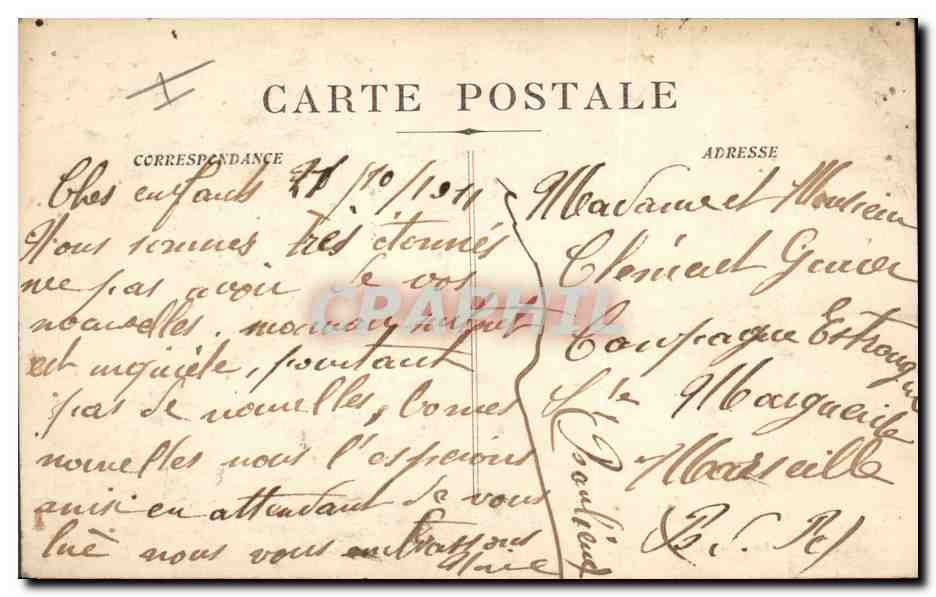 CARTE POSTALE
CORRESPONDANCE
Chès enfants 21/10/1911
Nous sommes très étonnés
ne pas avoir de vos
nouvelles. maman surtout
est inquiète, pourtant
pas de nouvelles, bonnes
nouvelles nous l'esperions
ainsi en attendant de vous
lire nous vous embrassons
ADRESSE
Madame et Monsieur
Clément
Campagne
Ste Marguerite
Marseille
(B. d. R)
CPAPHIL